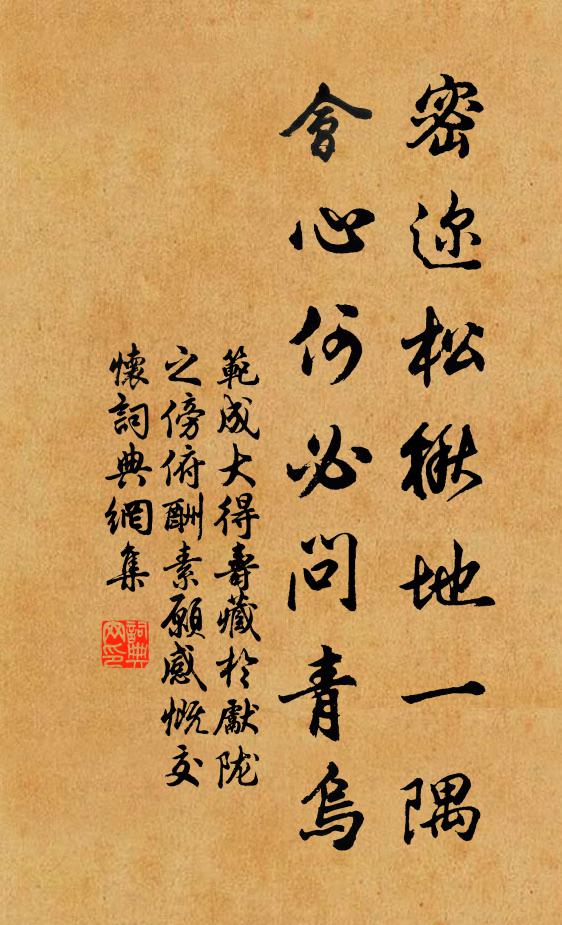 密迩松楸地一隅
會心何必問青烏
範成大得壽藏於獻陇
之傍俯酬素願感慨交
懷詞典網集
詞典
网印